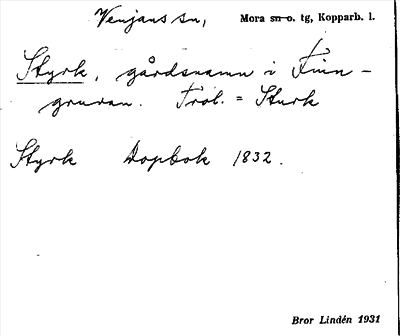 Venjans sn, Mora sn o. tg, Kopparb. l.
Styrk, gårdsnamn i Finn-
gruvan. Trol. = Sturk
Styrk Dopbok 1832.
Bror Lindén 1931